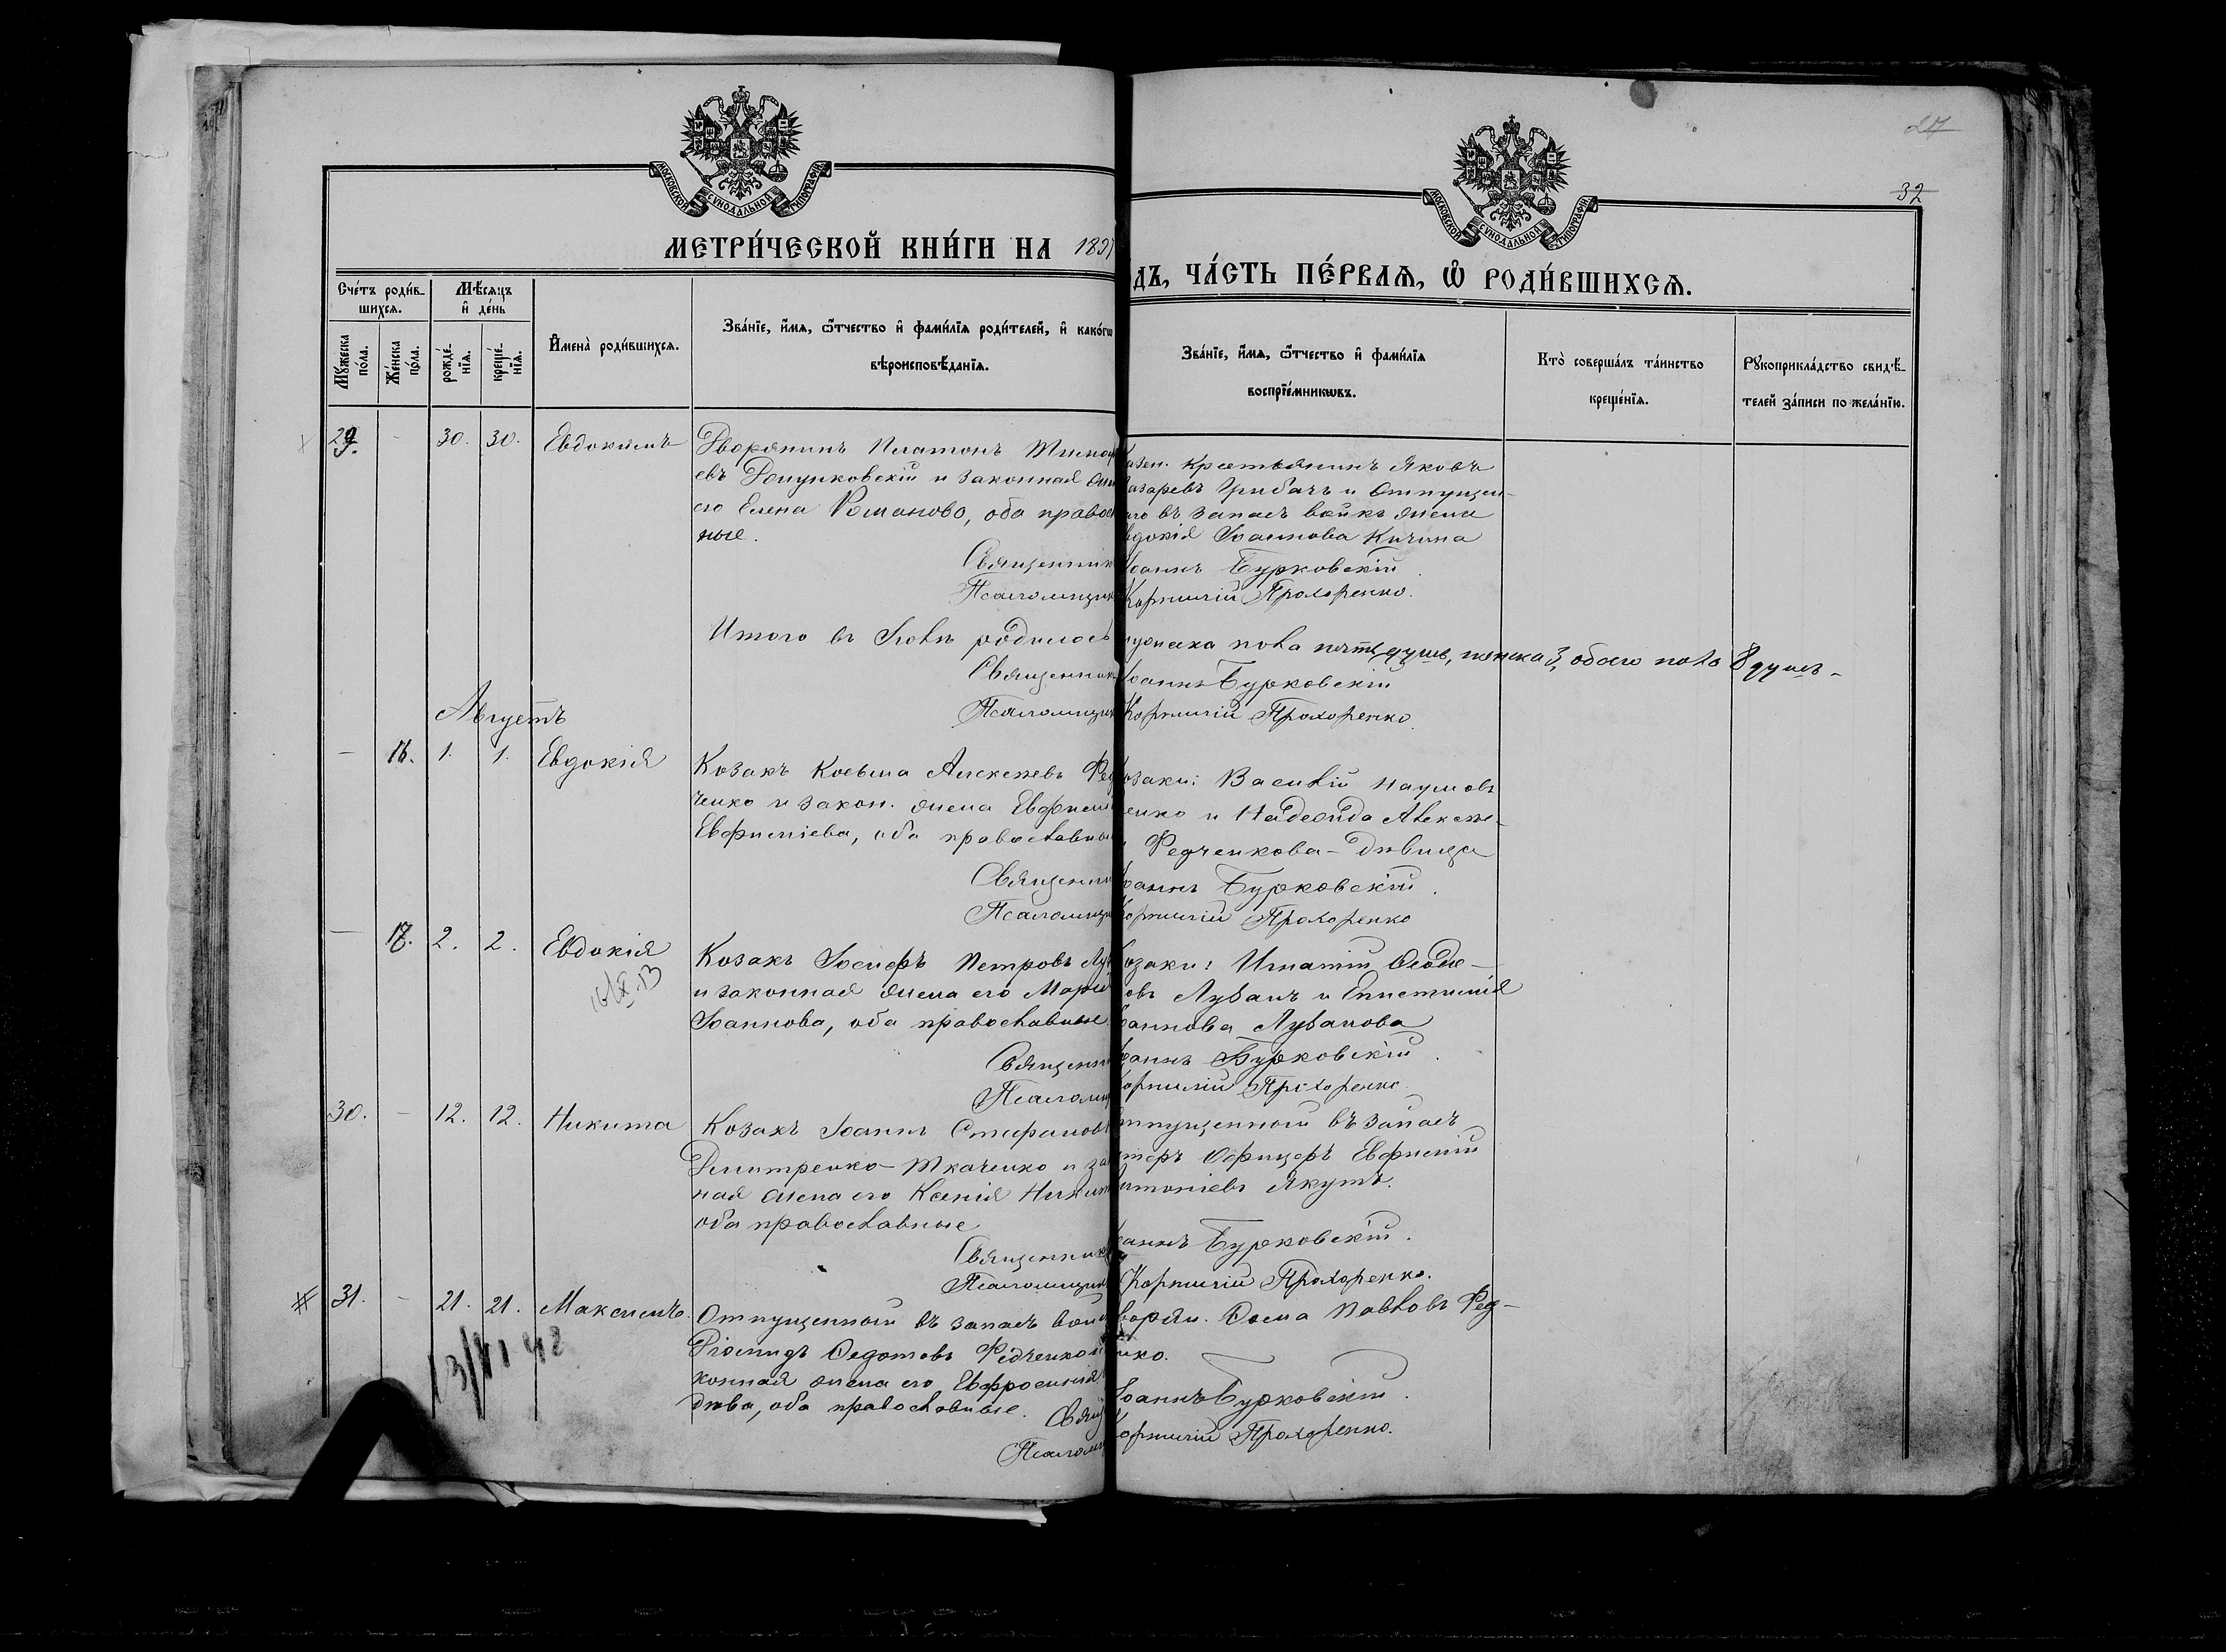 27
32
МОСКОВСКОЙ СѴНОДАЛЬНОЙ ТИПОГРАФІИ
МОСКОВСКОЙ СѴНОДАЛЬНОЙ ТИПОГРАФІИ
МЕТРИ́ЧЕСКОЙ КНИ́ГИ НА 189
ДЪ, ЧА́СТЬ ПЕ́РВАѦ, Ѡ҆ РОДИ́ВШИХСѦ.
Сче́тъ роди́в-
шихсѧ.
Мѣ́сѧцъ
и҆ де́нь
Мꙋ́жеска по́ла.
Же́нска по́ла.
рожде́-
нїѧ.
креще́-
нїѧ.
И҆мена̀ роди́вшихсѧ.
Зва́нїе, и҆́мѧ, ѻ҆́тчество и҆ фами́лїѧ роди́телей, и҆ како́гѡ
вѣроисповѣ́данїѧ.
Зва́нїе, и҆́мѧ, ѻ҆́тчество и҆ фами́лїѧ
воспрїе́мникѡвъ.
Кто̀ соверша́лъ та́инство
креще́нїѧ.
Рꙋкоприкла́дство свидѣ́-
телей за́писи по жела́нїю.
29. - 30. 30. Евдокимъ Дворянинъ Платонъ
евъ и законная
его Елена Романова, оба правос
ные.
Священник
Псаломщик
казен. крестьянинъ Яковъ
Лазаревъ Грибачъ и Отпущен-
наго въ запасъ войскъ жена
Евдокія Іоаннова Кичина
Іоаннъ Бурковскій
Корнилій Прохоренко.
Итого въ Іюлѣ родилось мужеска пола пять душъ, женска 3, обоего пола 8 душъ -
Священник Іоаннъ Бурковскій
Псаломщик Корнилій Прохоренко.
Августъ
- 16. 1. 1. Евдокія Козакъ Косьма Алексѣевъ Фед
ченко и закон. жена Евфимі
Евфиміева, оба православны
Священни
Псаломщи
Козаки: Василій Наумовъ
енко и Надежда Алексѣе-
Федченкова - дѣвица
Іоаннъ Бурковскій.
Корнилій Прохоренко
- 17. 2. 2. Евдокія Козакъ Іосифъ Петровъ Лу
и законная жена его Марі
Іоаннова, оба православные.
Священни
Псаломщ
Козаки: Игнатій
овъ Лубанъ и Епистимія
Іоаннова Лубанова
Іоаннъ Бурковскій.
Корнилій Прохоренко.
30. - 12. 12. Никита Козакъ Іоаннъ Стефановъ
Дмитренко-Ткаченко и за
ная жена его Ксенія Никит
оба православные
Священник
Псаломщик
Отпущенный въ запасъ
унтеръ Офицеръ Евфимій
Антоніевъ Якутъ.
Іоаннъ Бурковскій.
Корнилій Прохоренко.
31. - 21. 21. Максимъ. Отпущенный въ запасъ вой
Діомидъ Федотовъ Федченко и
конная жена его Евфросинія
оба православные.
Свящ
Псаломщ
Дворян. Ѳома Павловъ Фед-
ченко.
Іоаннъ Бурковскій.
Корнилій Прохоренко.
13/VI 42